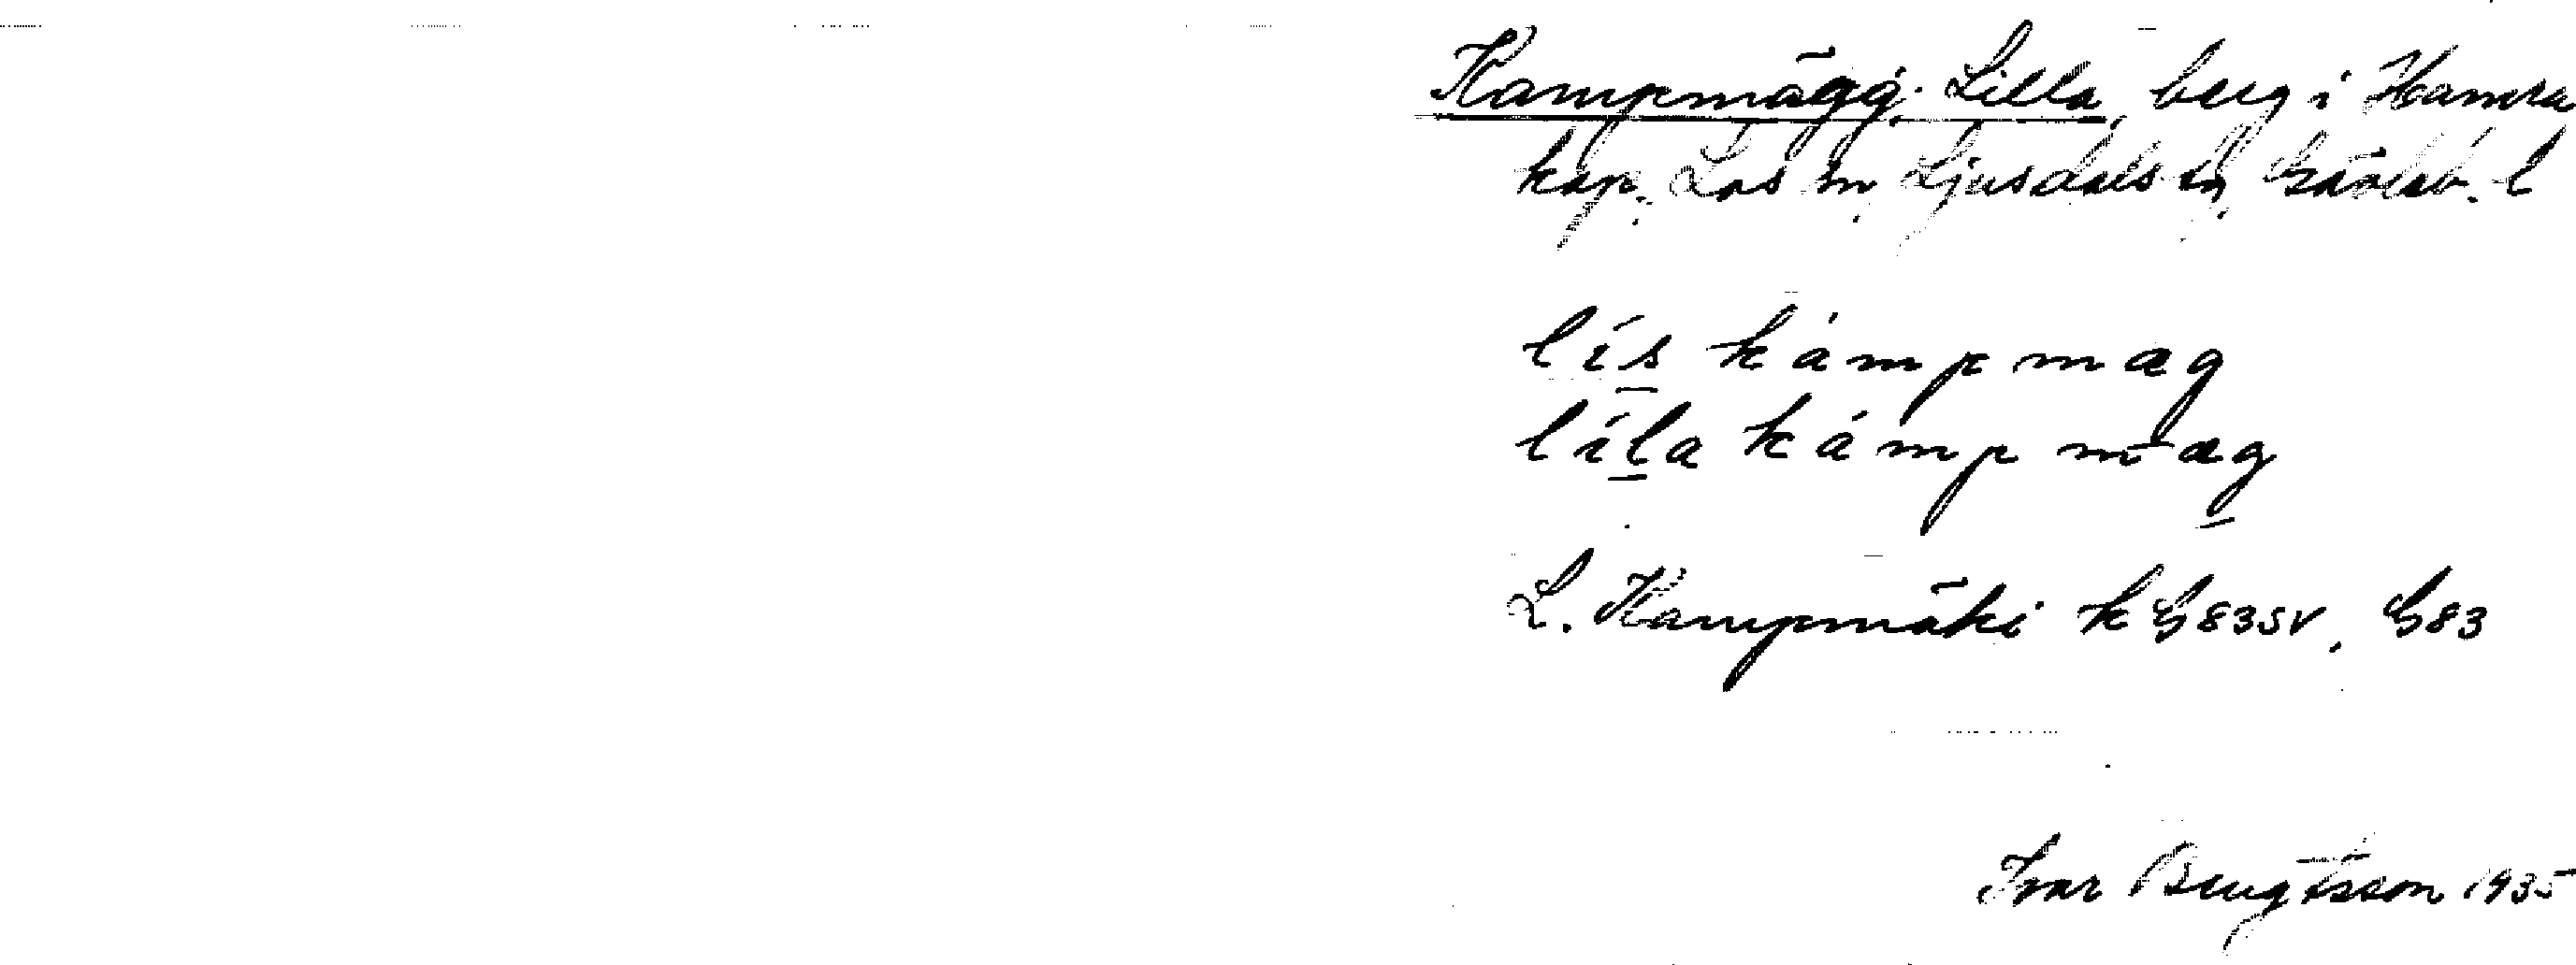 Kampmägg, Lilla, berg i Hamra
kap. Los sn, Ljusdals tg, Gävleb. l
lís kámpmag
líla kámpmag
L. Kampmäki k G 83 SV, G 83
Ivar Bengtsson 1935